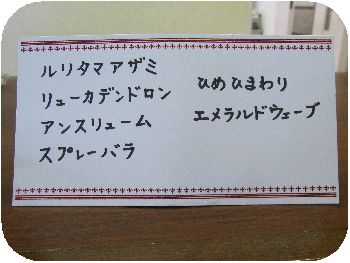 ルリタマアザミ
リューカデンドロン
アンスリューム
スプレーバラ
ひめひまわり
エメラルドウェーブ